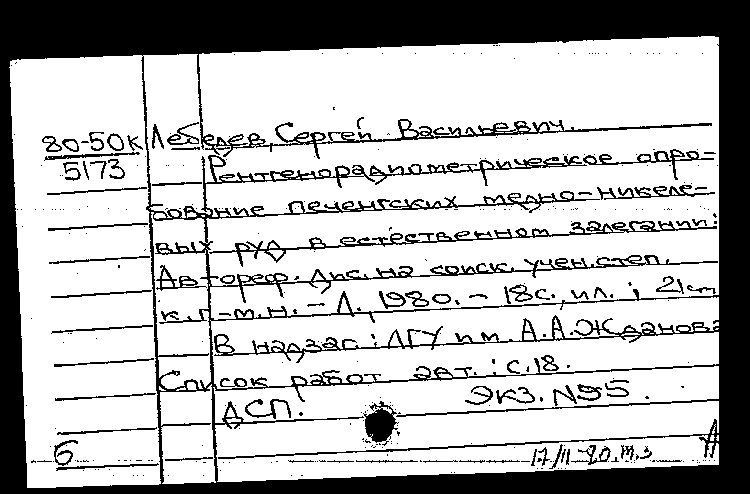 80-50к Лебедев, Сергей Васильевич.
5173 Рентгенорадиометрическое опро-
бование печенгских медно-никеле-
вых руд в естественном залегании:
Автореф. дис. на соиск. учен. степ.
к. г.-м. н. - Л., 1980. - 18 с., ил. ; 21 см
В надзаг : ЛГУ им. А. А. Жданова
Список работ авт. : с. 18.
ДСП. Экз. №95.
б